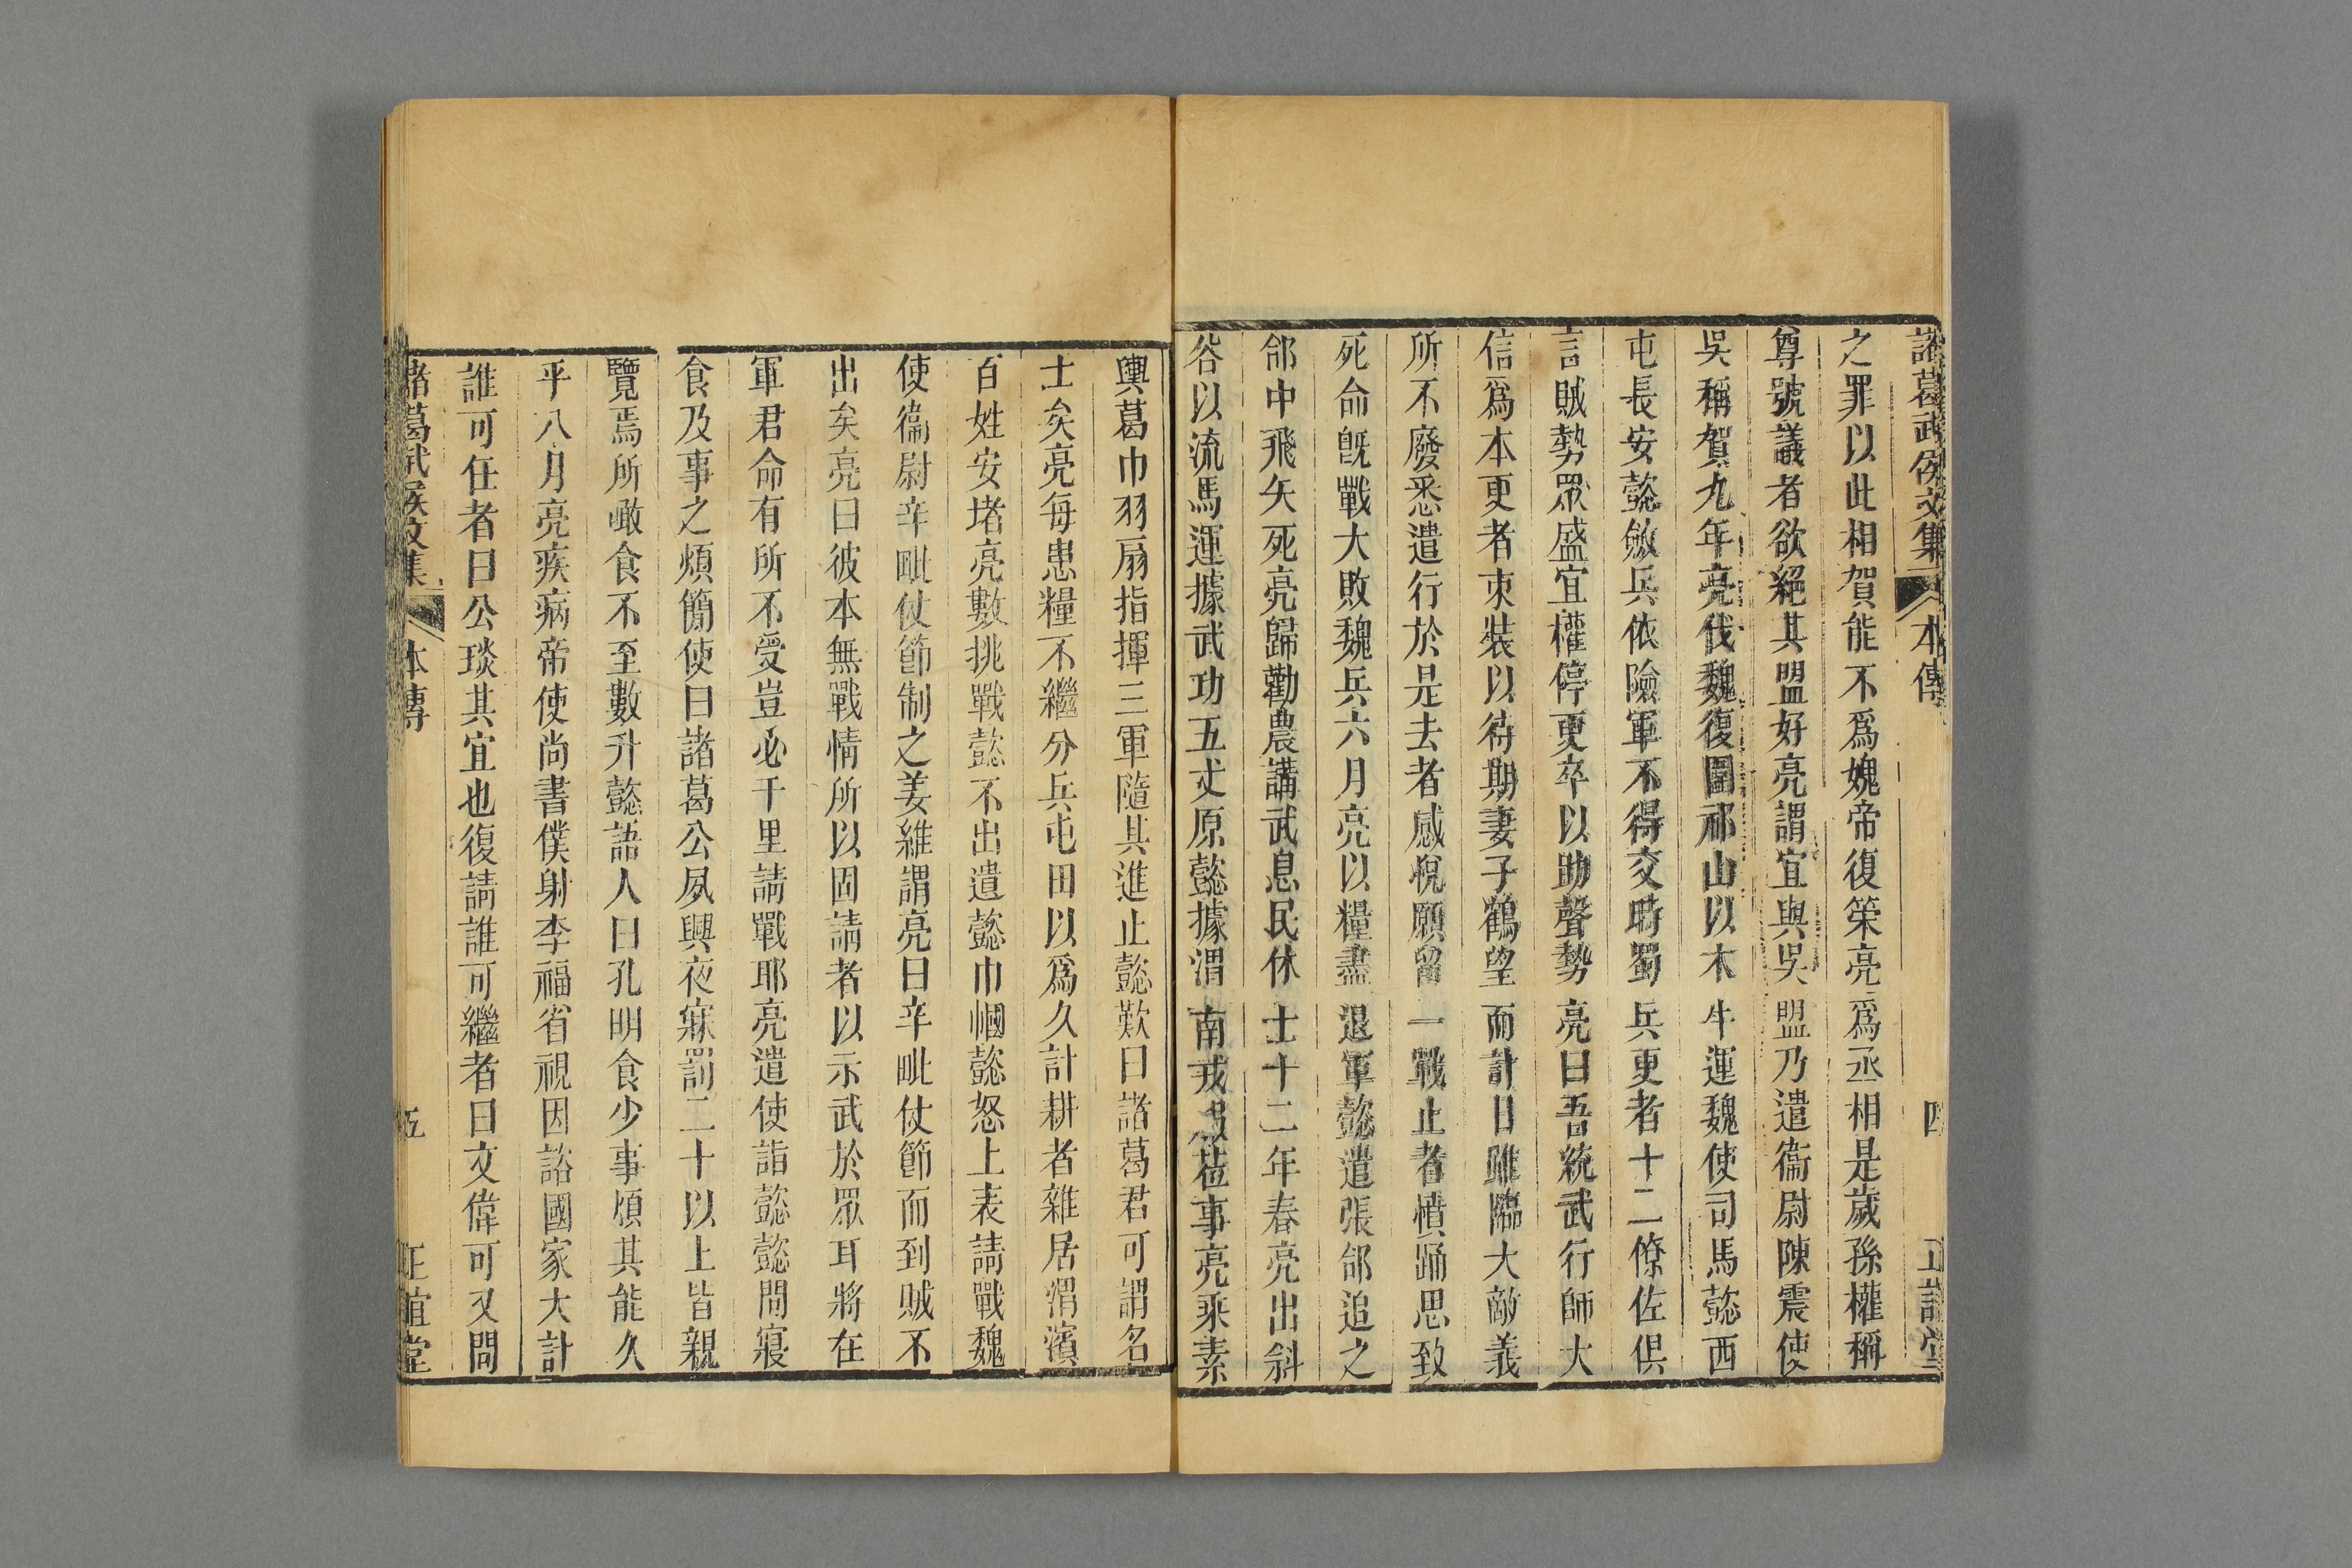 諸葛武侯文集 本傳 四 正誼堂
之罪以此相賀能不爲媿帝復策亮爲丞相是歲孫權稱
尊號議者欲絕其盟好亮謂宜與吳盟乃遣衞尉陳震使
吳稱賀九年亮伐魏復圍祁山以木牛運魏使司馬懿西
屯長安懿斂兵依險軍不得交時蜀兵更者十二僚佐俱
言賊勢眾盛宜權停更卒以助聲勢亮曰吾統武行師大
信爲本更者束裝以待期妻子鶴望而計日雖臨大敵義
所不廢悉遣行於是去者感悅願留一戰止者憤踊思致
死命旣戰大敗魏兵六月亮以糧盡退軍懿遣張郃追之
郃中飛矢死亮歸勸農講武息民休士十二年春亮出斜
谷以流馬運據武功五丈原懿據渭南戎服莅事亮乘素
輿葛巾羽扇指揮三軍隨其進止懿歎曰諸葛君可謂名
士矣亮每患糧不繼分兵屯田以爲久計耕者雜居渭濱
百姓安堵亮數挑戰懿不出遺懿巾幗懿怒上表請戰魏
使衞尉辛毗仗節制之姜維謂亮曰辛毗仗節而到賊不
出矣亮曰彼本無戰情所以固請者以示武於眾耳將在
軍君命有所不受豈必千里請戰耶亮遣使詣懿懿問寢
食及事之煩簡使曰諸葛公夙興夜寐罰二十以上皆親
覽焉所噉食不至數升懿語人曰孔明食少事煩其能久
乎八月亮疾病帝使尚書僕射李福省視因諮國家大計
誰可任者曰公琰其宜也復請誰可繼者曰文偉可又問
諸葛武侯文集 本傳 五 正誼堂